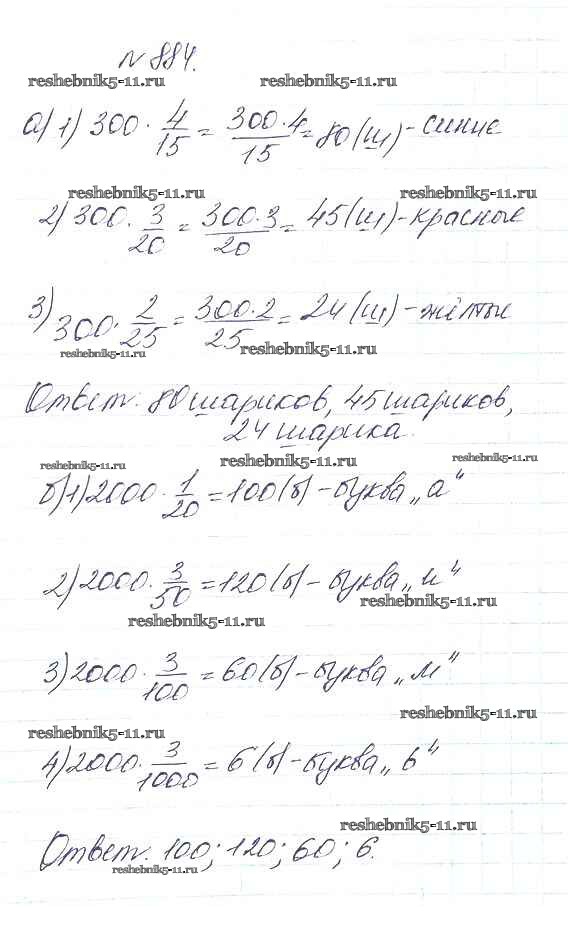 N 884.
reshebnik5-11.ru reshebnik5-11.ru
а) 1) 300 · 4/15 = 300·4/15 = 80 (ш) - синие
reshebnik5-11.ru reshebnik5-11.ru
2) 300 · 3/20 = 300·3/20 = 45 (ш) - красные
3) 300 · 2/25 = 300·2/25 = 24 (ш) - жёлтые
reshebnik5-11.ru reshebnik5-11.ru
Ответ: 80 шариков, 45 шариков,
24 шарика.
reshebnik5-11.ru reshebnik5-11.ru reshebnik5-11.ru
б) 1) 2000 · 1/20 = 100 (б) - буква „а“
2) 2000 · 3/50 = 120 (б) - буква „и“
reshebnik5-11.ru
reshebnik5-11.ru
3) 2000 · 3/100 = 60 (б) - буква „м“
reshebnik5-11.ru
reshebnik5-11.ru
4) 2000 · 3/1000 = 6 (б) - буква „ь“
reshebnik5-11.ru
Ответ: 100; 120; 60; 6.
reshebnik5-11.ru